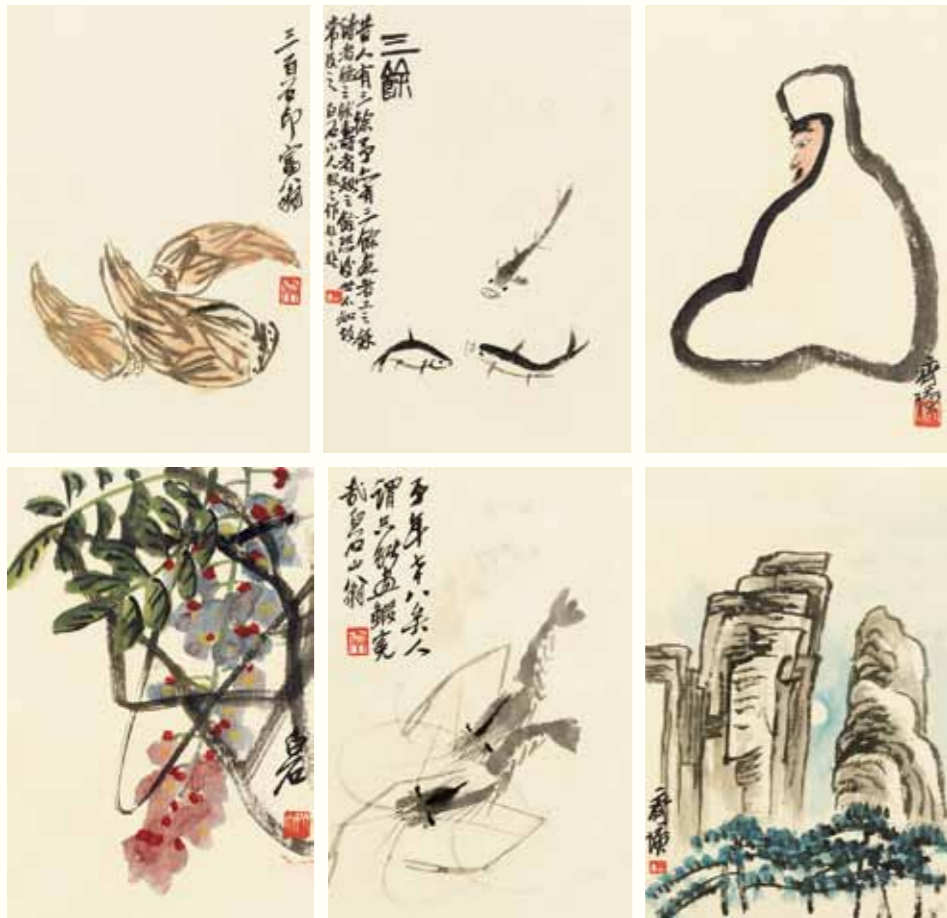 三百石印富翁
三餘
昔人有三餘予亦有三餘畫者工之餘
詩者睡之餘壽者劫之餘恐後世不知故
白石山人
齊璜
白石
予年七十八矣人
謂只能畫蝦冤
哉白石山翁
齊璜